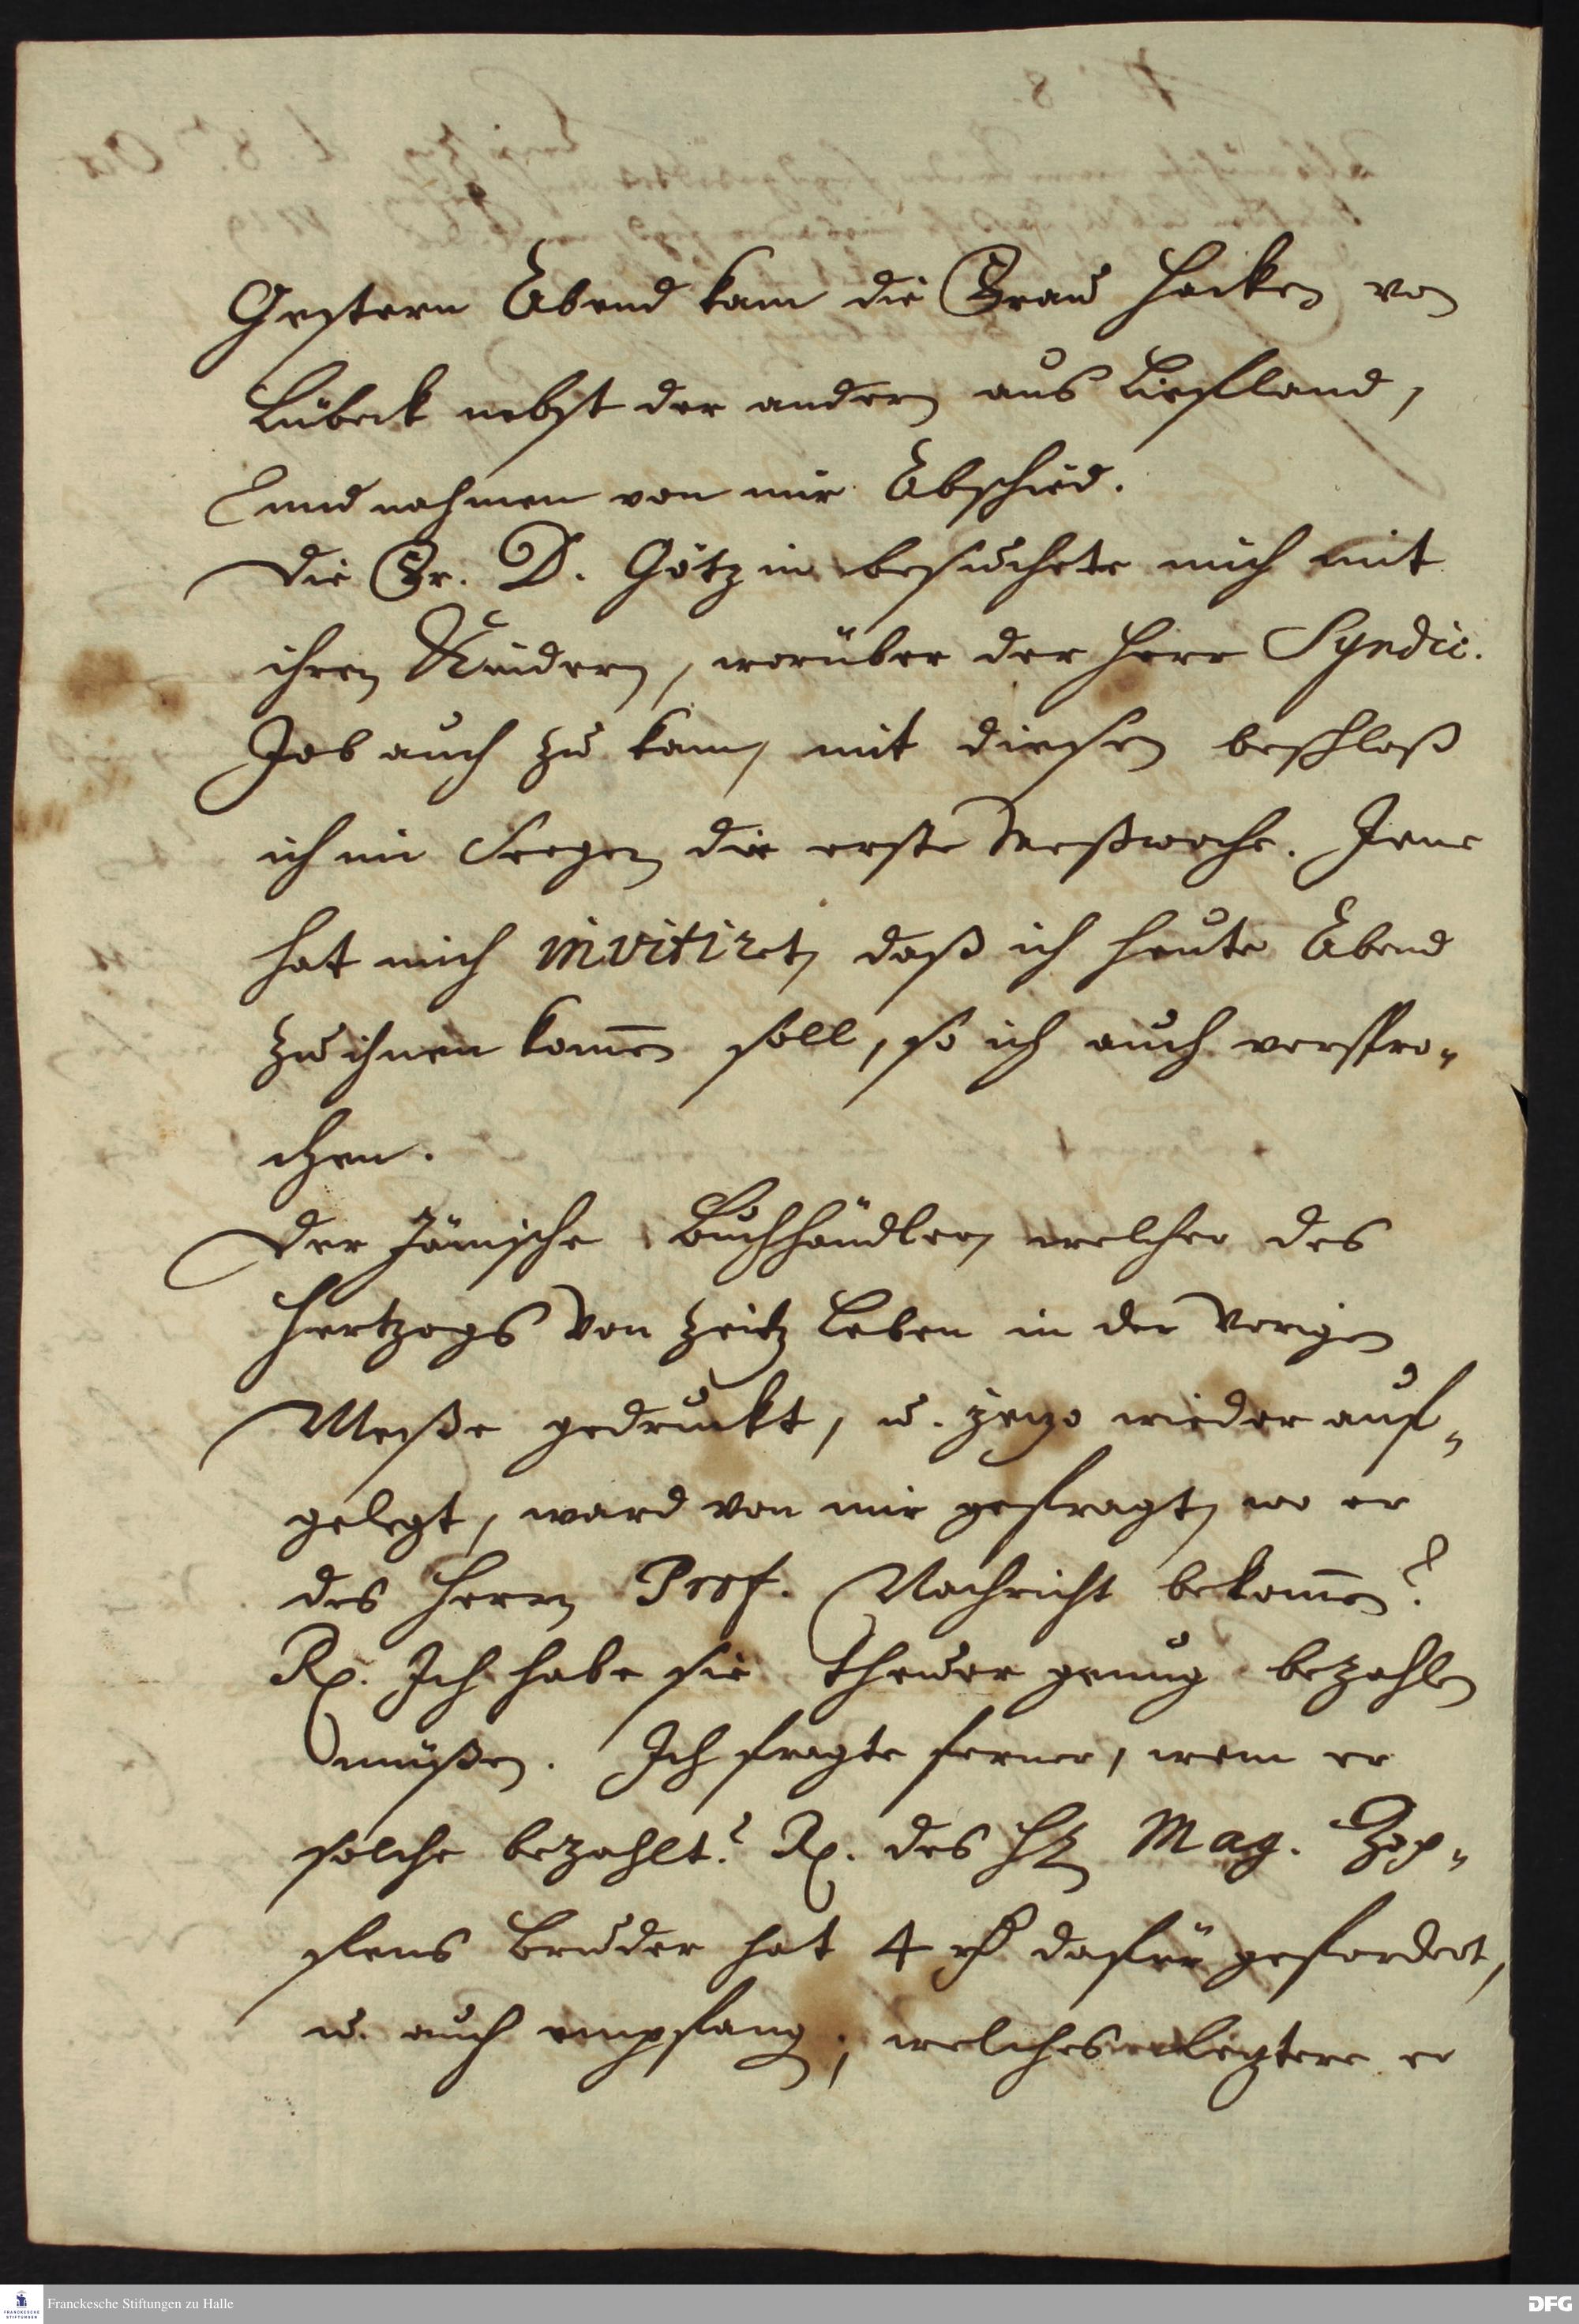 Gestern Abend kam die Frau Hacken von
Lübeck nebst der andern aus Liefland,
und nahmen von mir Abschied.
Die Fr. D. Götzin besuchete mich mit
ihren Kindern, worüber der Herr Syndic.
Job auch zu kam, mit diesen beschloß
ich im Seegen die erste Meßwoche. Jene
hat mich invitiret, daß ich heute Abend
zu ihnen kom̅en soll, so ich auch verspro-
chen.
Der Jänische Buchhändler, welcher des
Hertzogs von Zeitz Leben in der vorigen
Meße gedruckt, u. jetzo wieder auf-
gelegt, ward von mir gefragt, wo er
des Herrn Prof. Nachricht bekom̅en?
Rp. Ich habe sie theuer genug bezahlen
müßen. Ich fragte ferner, wem er
solche bezahlt? Rp. des H. Mag. Zop-
fens Bruder hat 4 rh dafür gefordert,
u. auch empfang; welches letztere er
Franckesche Stiftungen zu Halle
DFG